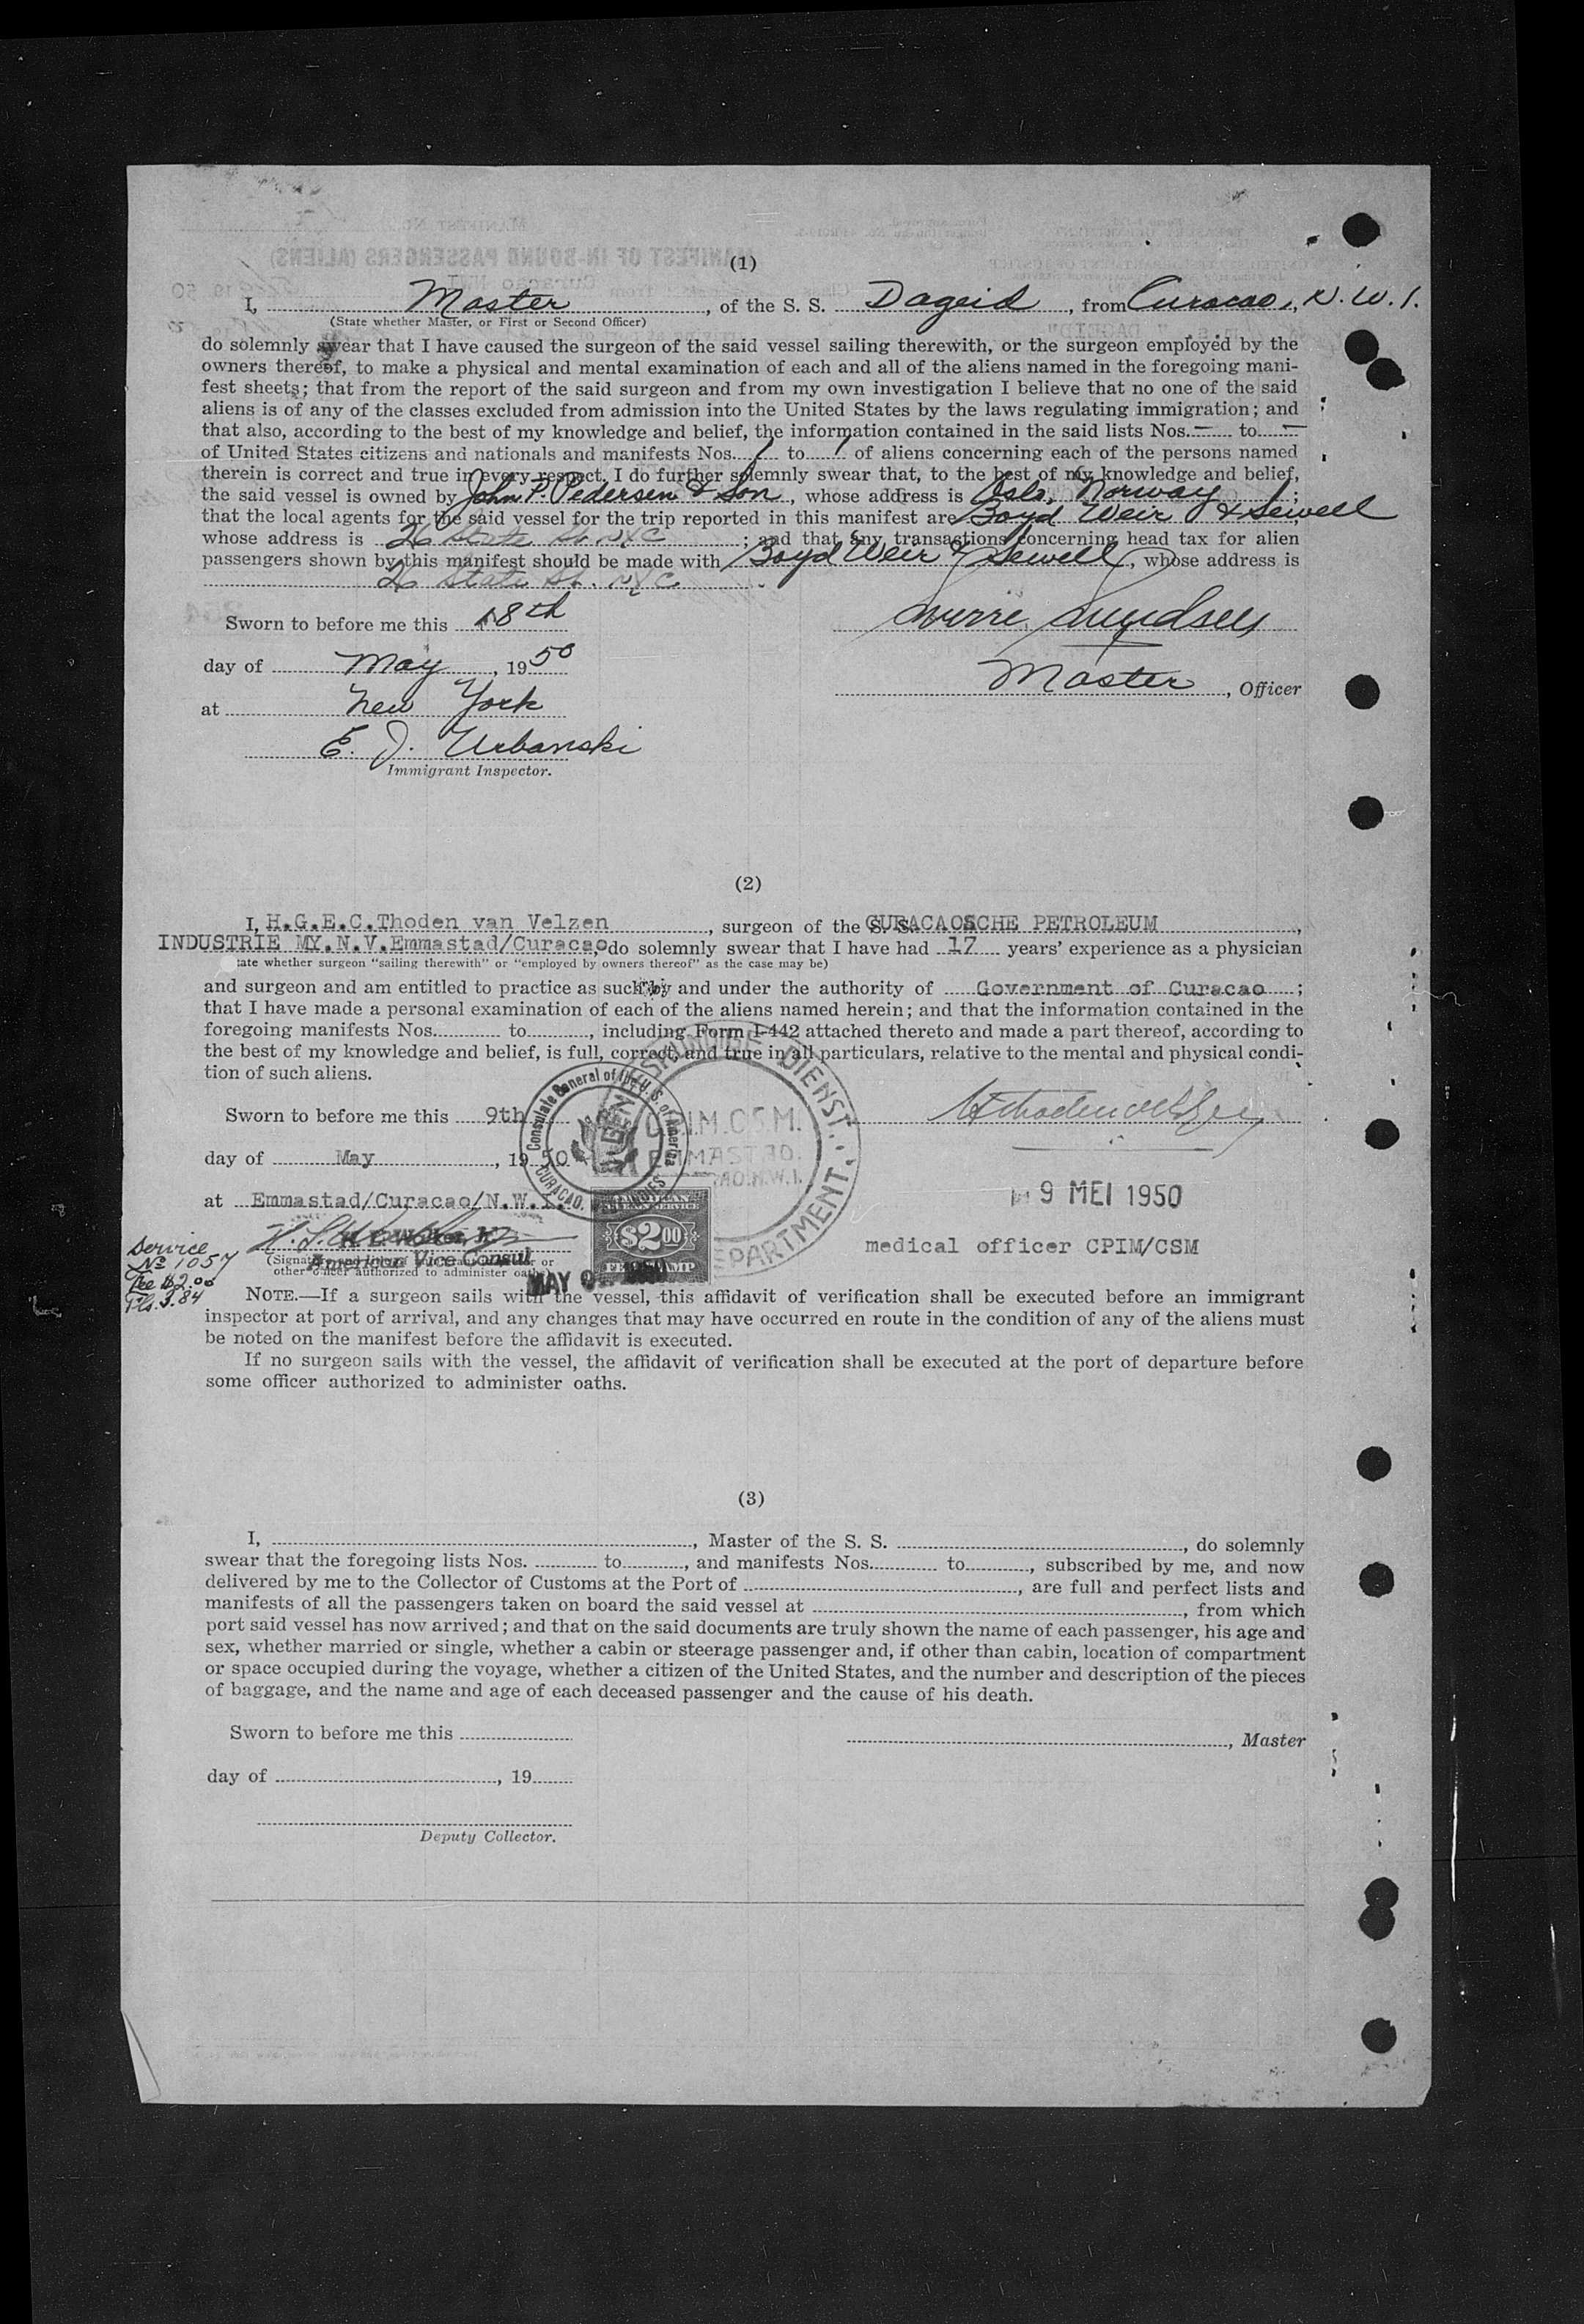 (1)
I, Master, of the S. S. Dageid, from Curacao, N. W. I.
(State whether Master, or First or Second Officer)
do solemnly swear that I have caused the surgeon of the said vessel sailing therewith, or the surgeon employed by the
owners thereof, to make a physical and mental examination of each and all of the aliens named in the foregoing mani-
fest sheets; that from the report of the said surgeon and from my own investigation I believe that no one of the said
aliens is of any of the classes excluded from admission into the United States by the laws regulating immigration; and
that also, according to the best of my knowledge and belief, the information contained in the said lists Nos. — to —
of United States citizens and nationals and manifests Nos. 1 to 1 of aliens concerning each of the persons named
therein is correct and true in every respect. I do further solemnly swear that, to the best of my knowledge and belief,
the said vessel is owned by John P. Pedersen & Son, whose address is Oslo, Norway;
that the local agents for the said vessel for the trip reported in this manifest are Boyd Weir & Sewell
whose address is 26 State St. NYC; and that any transactions concerning head tax for alien
passengers shown by this manifest should be made with Boyd Weir & Sewell, whose address is
26 State St. NYC.
Sworn to before me this 18th
day of May, 1950
Master, Officer
at New York
E. J. Urbanski
Immigrant Inspector.
(2)
I, H.G.E.C.Thoden van Velzen, surgeon of the S. S. CURACAOSCHE PETROLEUM,
INDUSTRIE MY.N.V.Emmastad/Curacao, do solemnly swear that I have had 17 years' experience as a physician
ate whether surgeon "sailing therewith" or "employed by owners thereof" as the case may be)
and surgeon and am entitled to practice as such by and under the authority of Government of Curacao;
that I have made a personal examination of each of the aliens named herein; and that the information contained in the
foregoing manifests Nos. to, including Form I-442 attached thereto and made a part thereof, according to
the best of my knowledge and belief, is full, correct, and true in all particulars, relative to the mental and physical condi-
tion of such aliens.
Consulate General of the U. S. of America
CURACAO,
DIENST.
C.P.I.M.C.S.M.
EMMASTAD.
DEPARTMENT
Sworn to before me this 9th
day of May, 1950
at Emmastad/Curacao/N.W.I.
9 MEI 1950
AMERICAN
FOREIGN SERVICE
$2.00
FEE STAMP
American Vice Consul
other officer authorized to administer oaths)
MAY 9
medical officer CPIM/CSM
Service
No 1057
Fee $2.00
Fls. 3.84
NOTE.—If a surgeon sails with the vessel, this affidavit of verification shall be executed before an immigrant
inspector at port of arrival, and any changes that may have occurred en route in the condition of any of the aliens must
be noted on the manifest before the affidavit is executed.
If no surgeon sails with the vessel, the affidavit of verification shall be executed at the port of departure before
some officer authorized to administer oaths.
(3)
I, , Master of the S. S. , do solemnly
swear that the foregoing lists Nos. to, and manifests Nos. to, subscribed by me, and now
delivered by me to the Collector of Customs at the Port of , are full and perfect lists and
manifests of all the passengers taken on board the said vessel at , from which
port said vessel has now arrived; and that on the said documents are truly shown the name of each passenger, his age and
sex, whether married or single, whether a cabin or steerage passenger and, if other than cabin, location of compartment
or space occupied during the voyage, whether a citizen of the United States, and the number and description of the pieces
of baggage, and the name and age of each deceased passenger and the cause of his death.
Sworn to before me this
, Master
day of , 19
Deputy Collector.